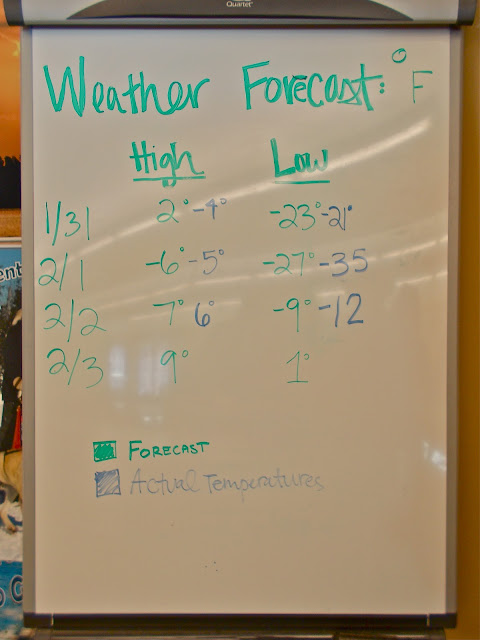 Quartet
Weather Forecast: °F
High Low
1/31 2° -4° -23° -21°
2/1 -6° -5° -27° -35
2/2 7° 6° -9° -12
2/3 9° 1°
Forecast
Actual Temperatures